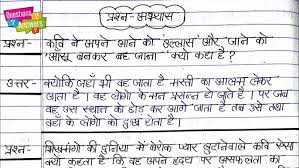 Questions
Answers
प्रश्न-अभ्यास
प्रश्न- कवि ने अपने आने को 'उल्लास' और 'जाने को
आँसू बनकर बह जाना' क्यों कहा है?
उत्तर- क्योंकि जहाँ भी वह जाता है मस्ती का आलम लेकर
जाता है। वह लोगों के मन प्रसन्न हो जाते है। पर जब
वह उस स्थान को छोड़ कर आगे जाता है तब उसे तथा
वहाँ के लोगों को दुःख होता है।
प्रश्न- भिखमंगों की दुनिया में बेरोक प्यार लुटानेवाले कवि ऐसा
क्यों कहता है कि वह अपने हृदय पर असफलता का